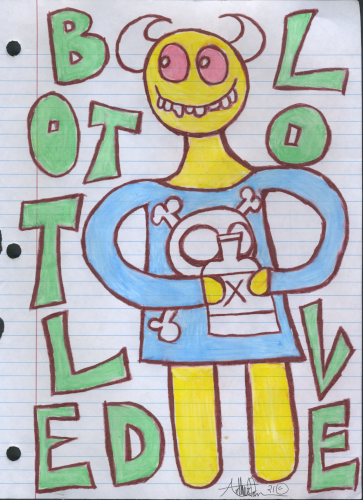 BOTTLED
LOVE
X